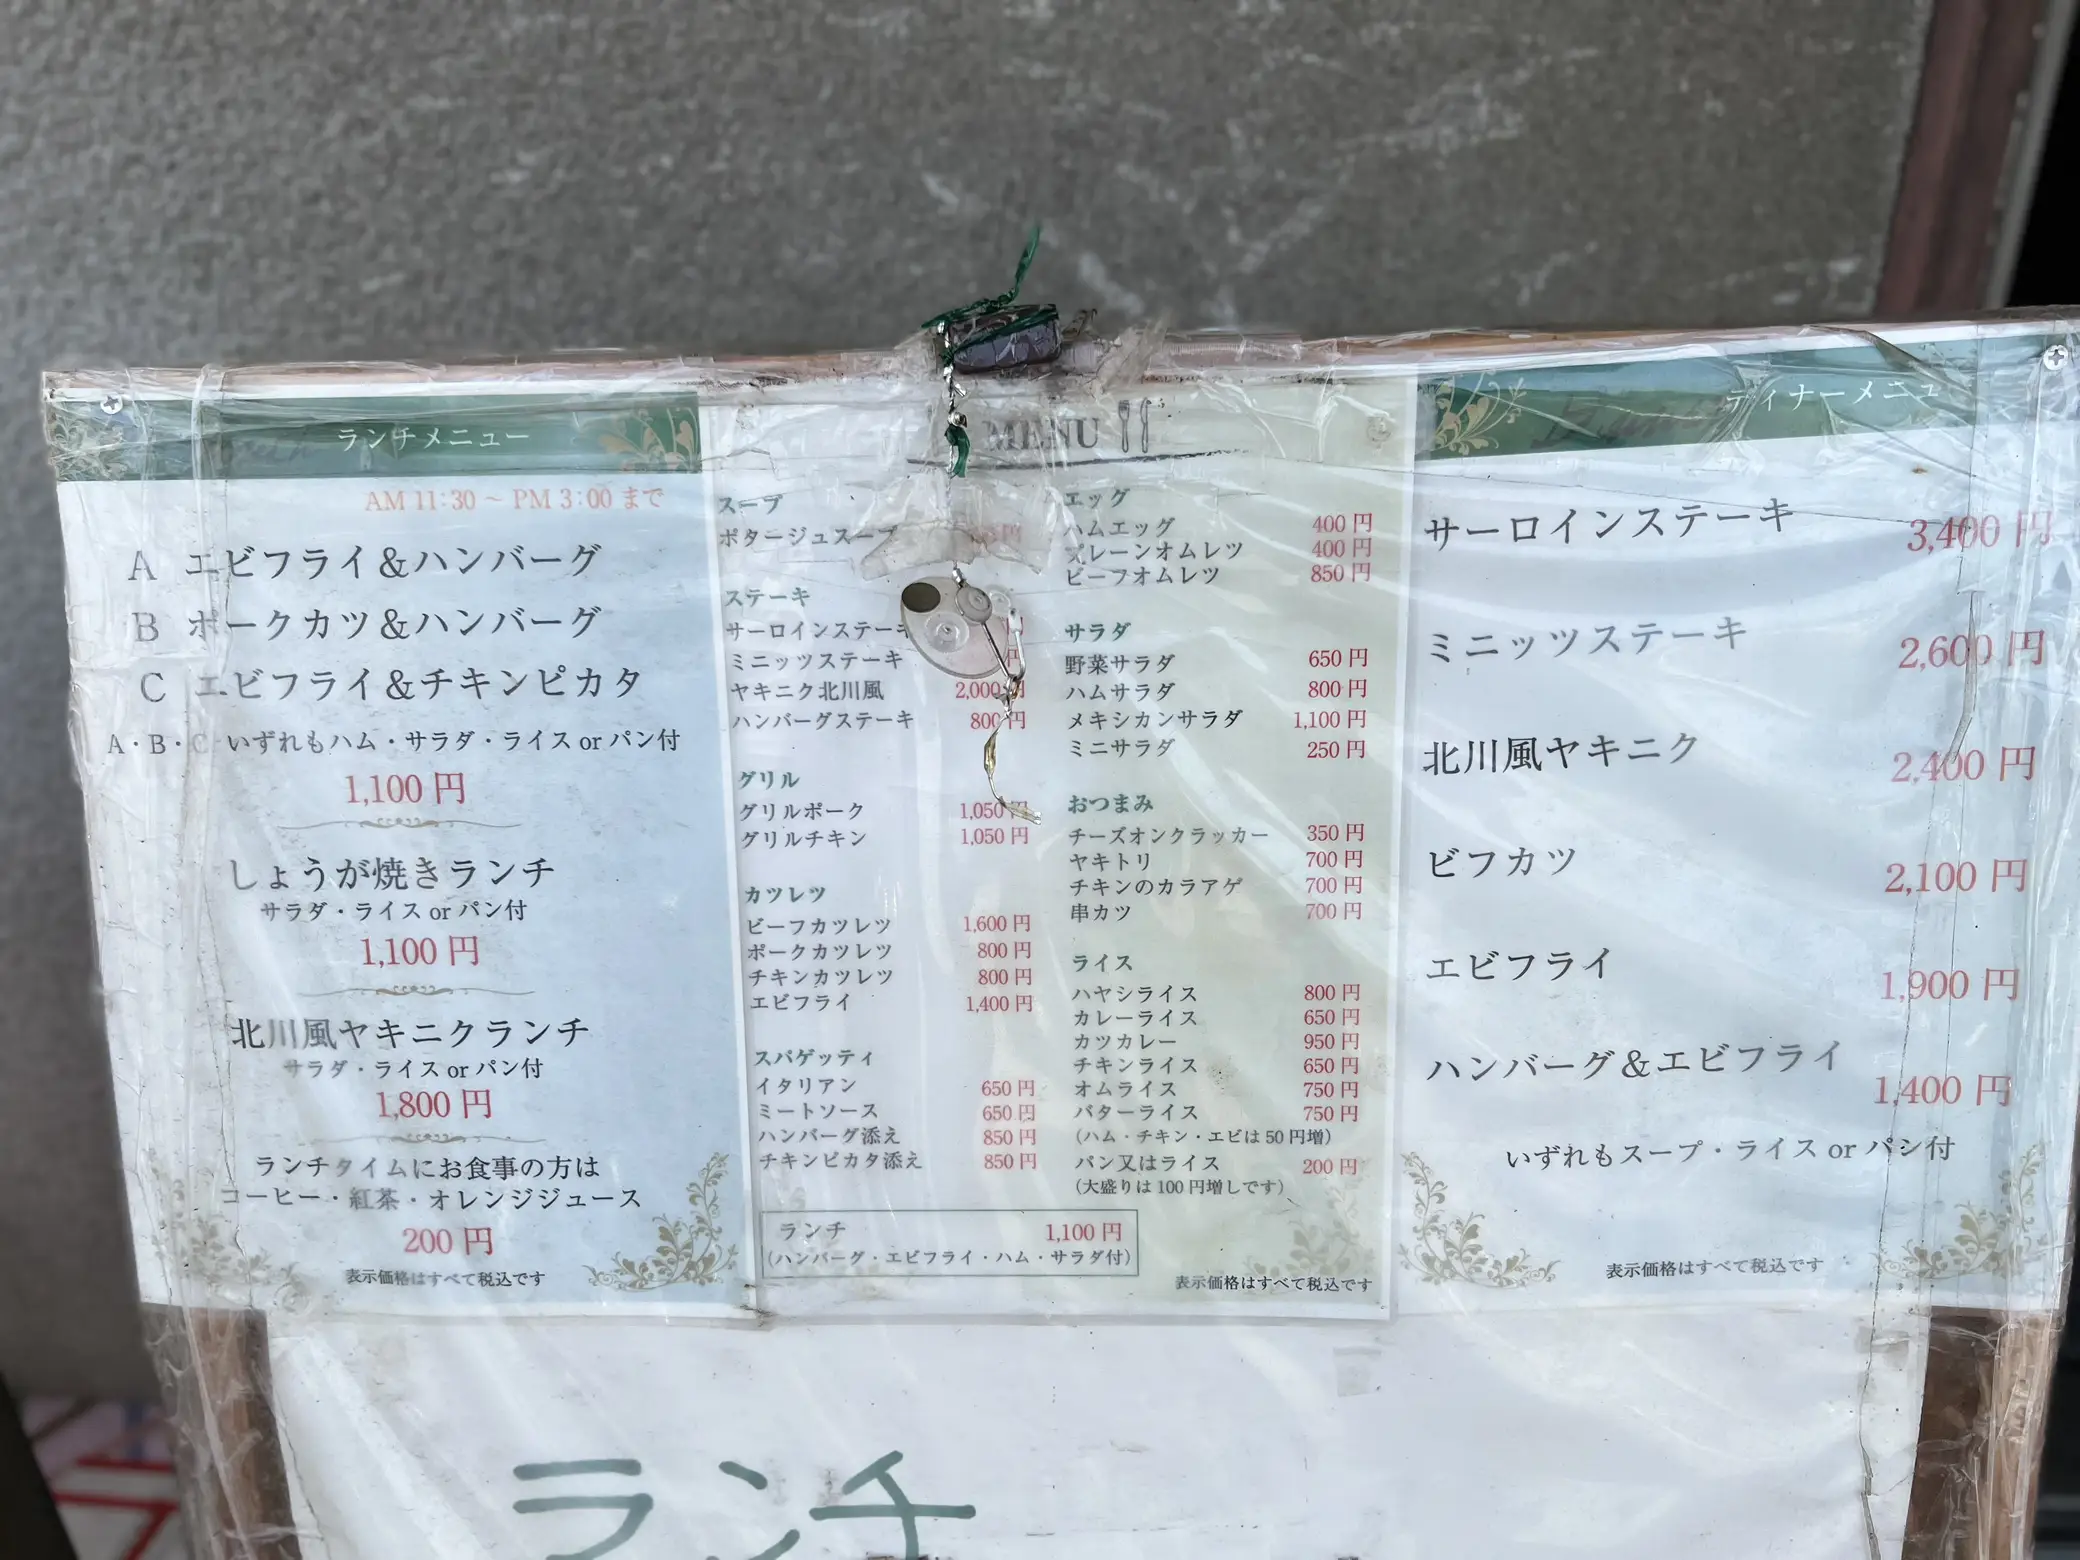 ランチメニュー
AM 11:30 ~ PM 3:00 まで
A エビフライ&ハンバーグ
B ポークカツ&ハンバーグ
C エビフライ&チキンピカタ
A・B・C いずれもハム・サラダ・ライス or パン付
1,100 円
しょうが焼きランチ
サラダ・ライス or パン付
1,100 円
北川風ヤキニクランチ
サラダ・ライス or パン付
1,800 円
ランチタイムにお食事の方は
コーヒー・紅茶・オレンジジュース
200 円
表示価格はすべて税込です
MENU
スープ
ポタージュスープ 円
ステーキ
サーロインステーキ 円
ミニッツステーキ 円
ヤキニク北川風 2,000 円
ハンバーグステーキ 800 円
グリル
グリルポーク 1,050 円
グリルチキン 1,050 円
カツレツ
ビーフカツレツ 1,600 円
ポークカツレツ 800 円
チキンカツレツ 800 円
エビフライ 1,400 円
スパゲッティ
イタリアン 650 円
ミートソース 650 円
ハンバーグ添え 850 円
チキンピカタ添え 850 円
ランチ 1,100 円
(ハンバーグ・エビフライ・ハム・サラダ付)
エッグ
ハムエッグ 400 円
プレーンオムレツ 400 円
ビーフオムレツ 850 円
サラダ
野菜サラダ 650 円
ハムサラダ 800 円
メキシカンサラダ 1,100 円
ミニサラダ 250 円
おつまみ
チーズオンクラッカー 350 円
ヤキトリ 700 円
チキンのカラアゲ 700 円
串カツ 700 円
ライス
ハヤシライス 800 円
カレーライス 650 円
カツカレー 950 円
チキンライス 650 円
オムライス 750 円
バターライス 750 円
(ハム・チキン・エビは 50 円増)
パン又はライス 200 円
(大盛りは 100 円増しです)
表示価格はすべて税込です
ディナーメニュ
サーロインステーキ 3,400 円
ミニッツステーキ 2,600 円
北川風ヤキニク 2,400 円
ビフカツ 2,100 円
エビフライ 1,900 円
ハンバーグ&エビフライ 1,400 円
いずれもスープ・ライス or パン付
表示価格はすべて税込です
ランチ